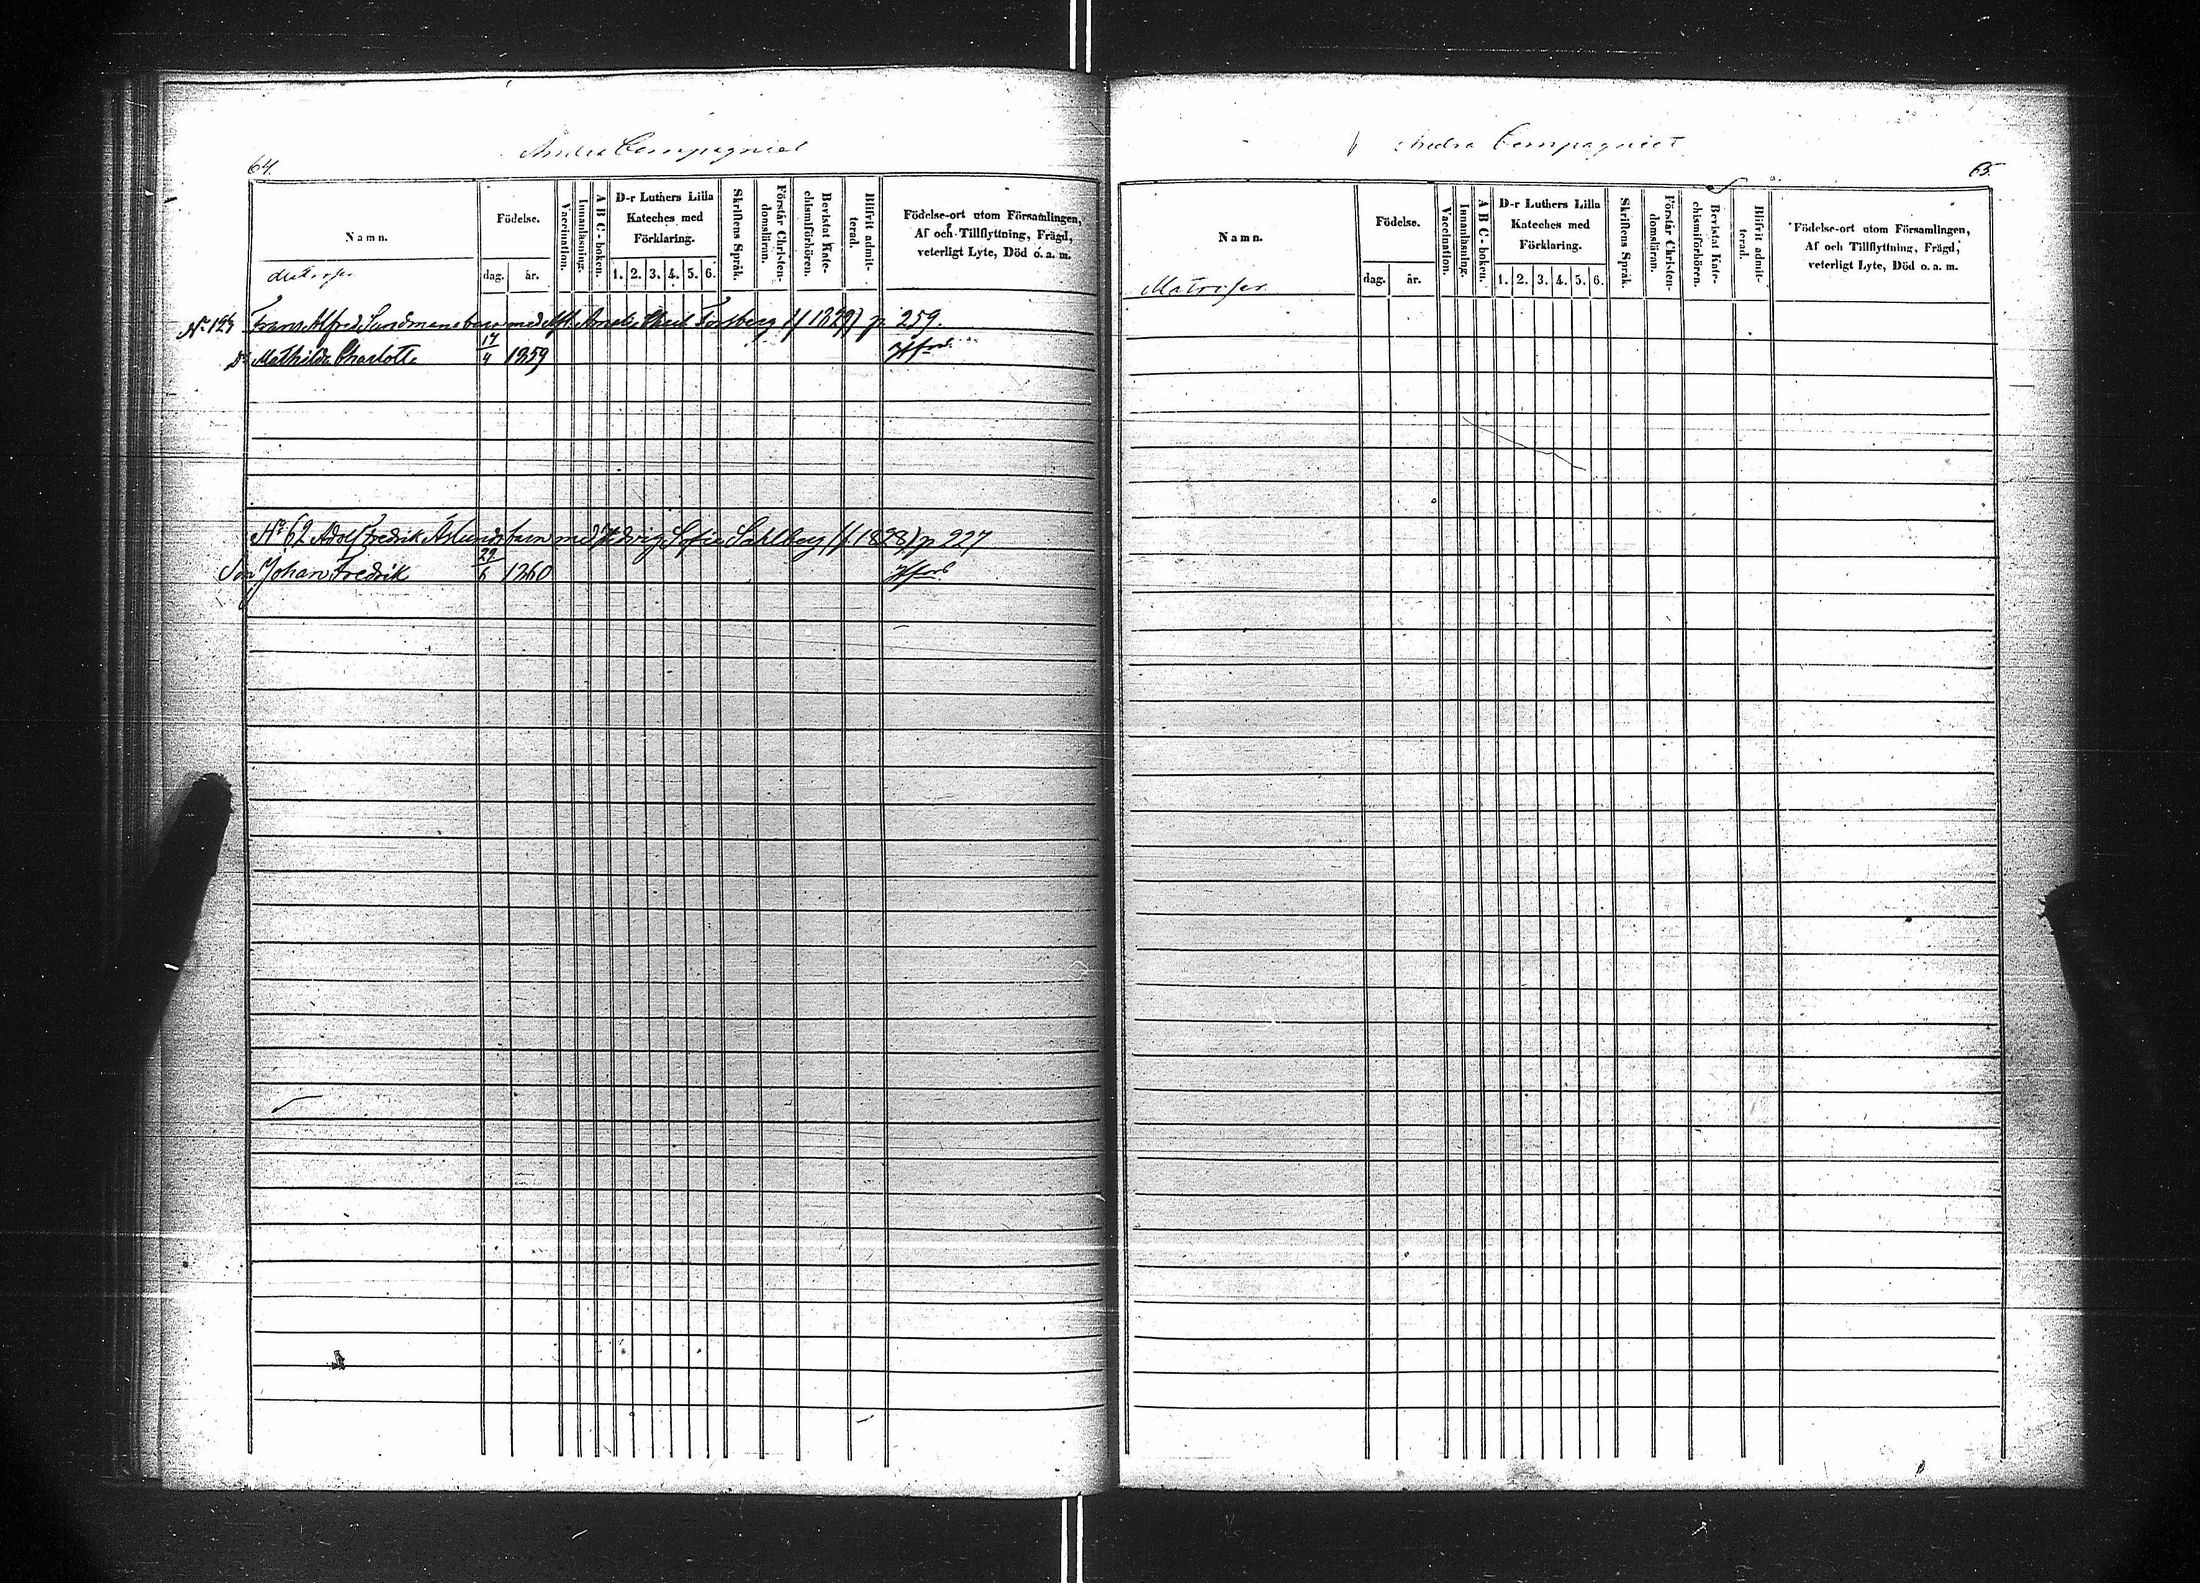 64.
Andra Compagniet
Namn.
Matroser
Födelse.
dag. år.
Vaccination.
Innanläsning.
ABC-boken.
D-r Luthers Lilla
Kateches med
Förklaring.
1. 2. 3. 4. 5. 6.
Skriftens Språk.
Förstår Christen-
domsläran.
Bevistat Kate-
chismiförhören.
Blifvit admit-
terad.
Födelse-ort utom Församlingen,
Af och Tillflyttning, Frägd,
veterligt Lyte, Död o. a. m.
Frans Alfred Sandmans barn med Forsberg (f 1829) p 259.
Dr Mathilda Charlotta 17/4 1859 Hfors
No 62 Adolf Fredrik Åslunds barn med Hedvig Sofia Sahlberg (f 1828) p 227
Son Johan Fredrik 29/6 1860 Hfors
65.
Andra Compagniet
Namn.
Matroser.
Födelse.
dag. år.
Vaccination.
Innanläsning.
ABC-boken.
D-r Luthers Lilla
Kateches med
Förklaring.
1. 2. 3. 4. 5. 6.
Skriftens Språk.
Förstår Christen-
domsläran.
Bevistat Kate-
chismiförhören.
Blifvit admit-
terad.
Födelse-ort utom Församlingen,
Af och Tillflyttning, Frägd,
veterligt Lyte, Död o. a. m.